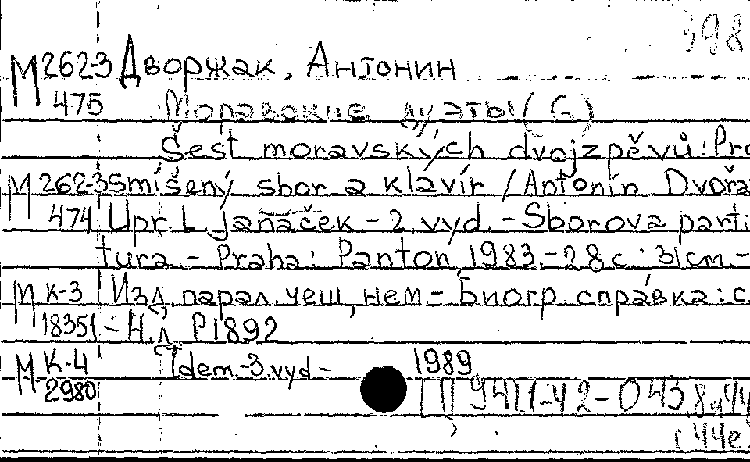 398
М 2623 Дворжак, Антонин
475 Моравские дуэты (6)
Šest moravských dvojzpěvů: Pro
М 2623 smíšený sbor a klavír / Antonín Dvořa
474 Upr. L. Janáček - 2. vyd. - Sborova parti
tura. - Praha: Panton, 1983. - 28 с.; 31 cm. -
М К-3 Изд. парал. чеш., нем. - Биогр. справка: с.
18351 - Н.д. P1892
М К-4 Idem. - 3. vyd. - 1989
2980